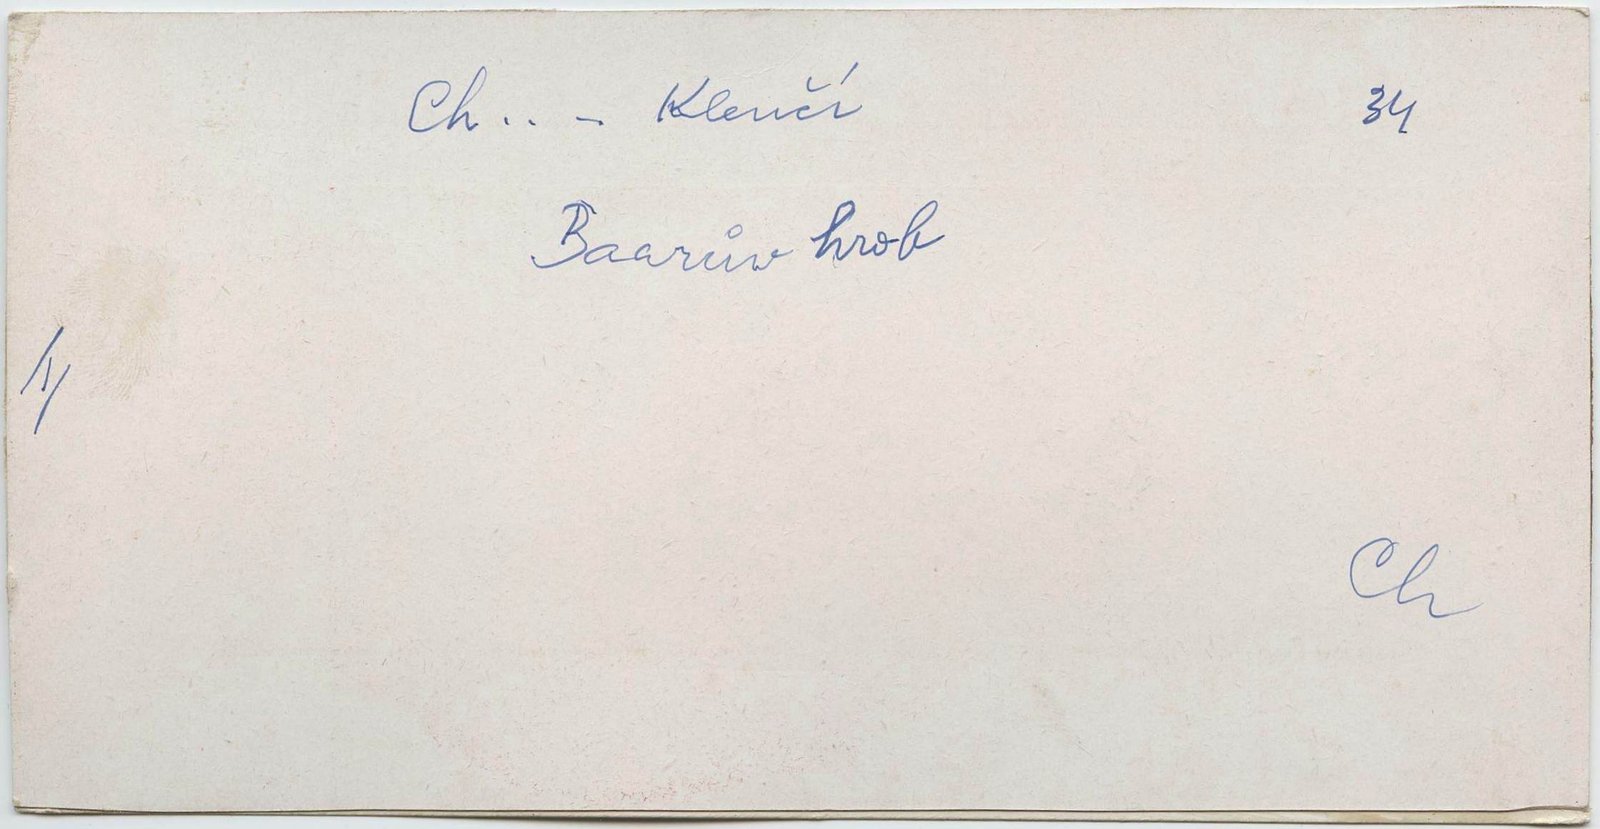 Ch.. - Klenčí
34
Baarův hrob
Ch